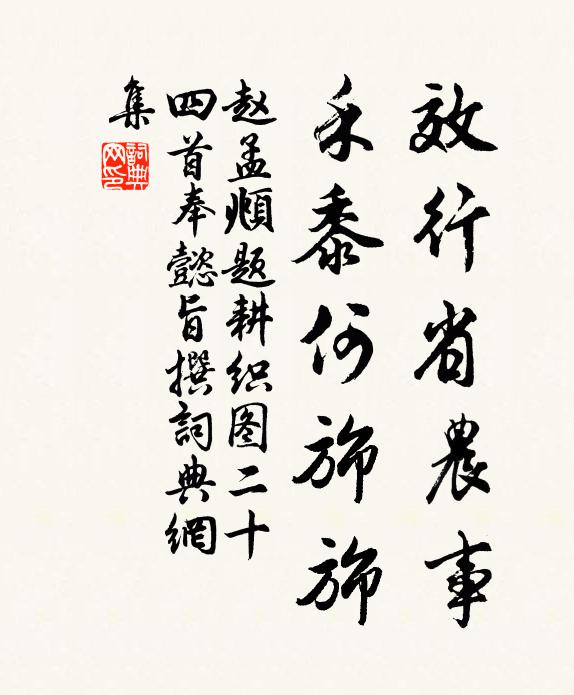 效行省農事
禾黍何旆旆
赵孟頫题耕织图二十
四首奉懿旨撰詞典網
集
詞典
网印